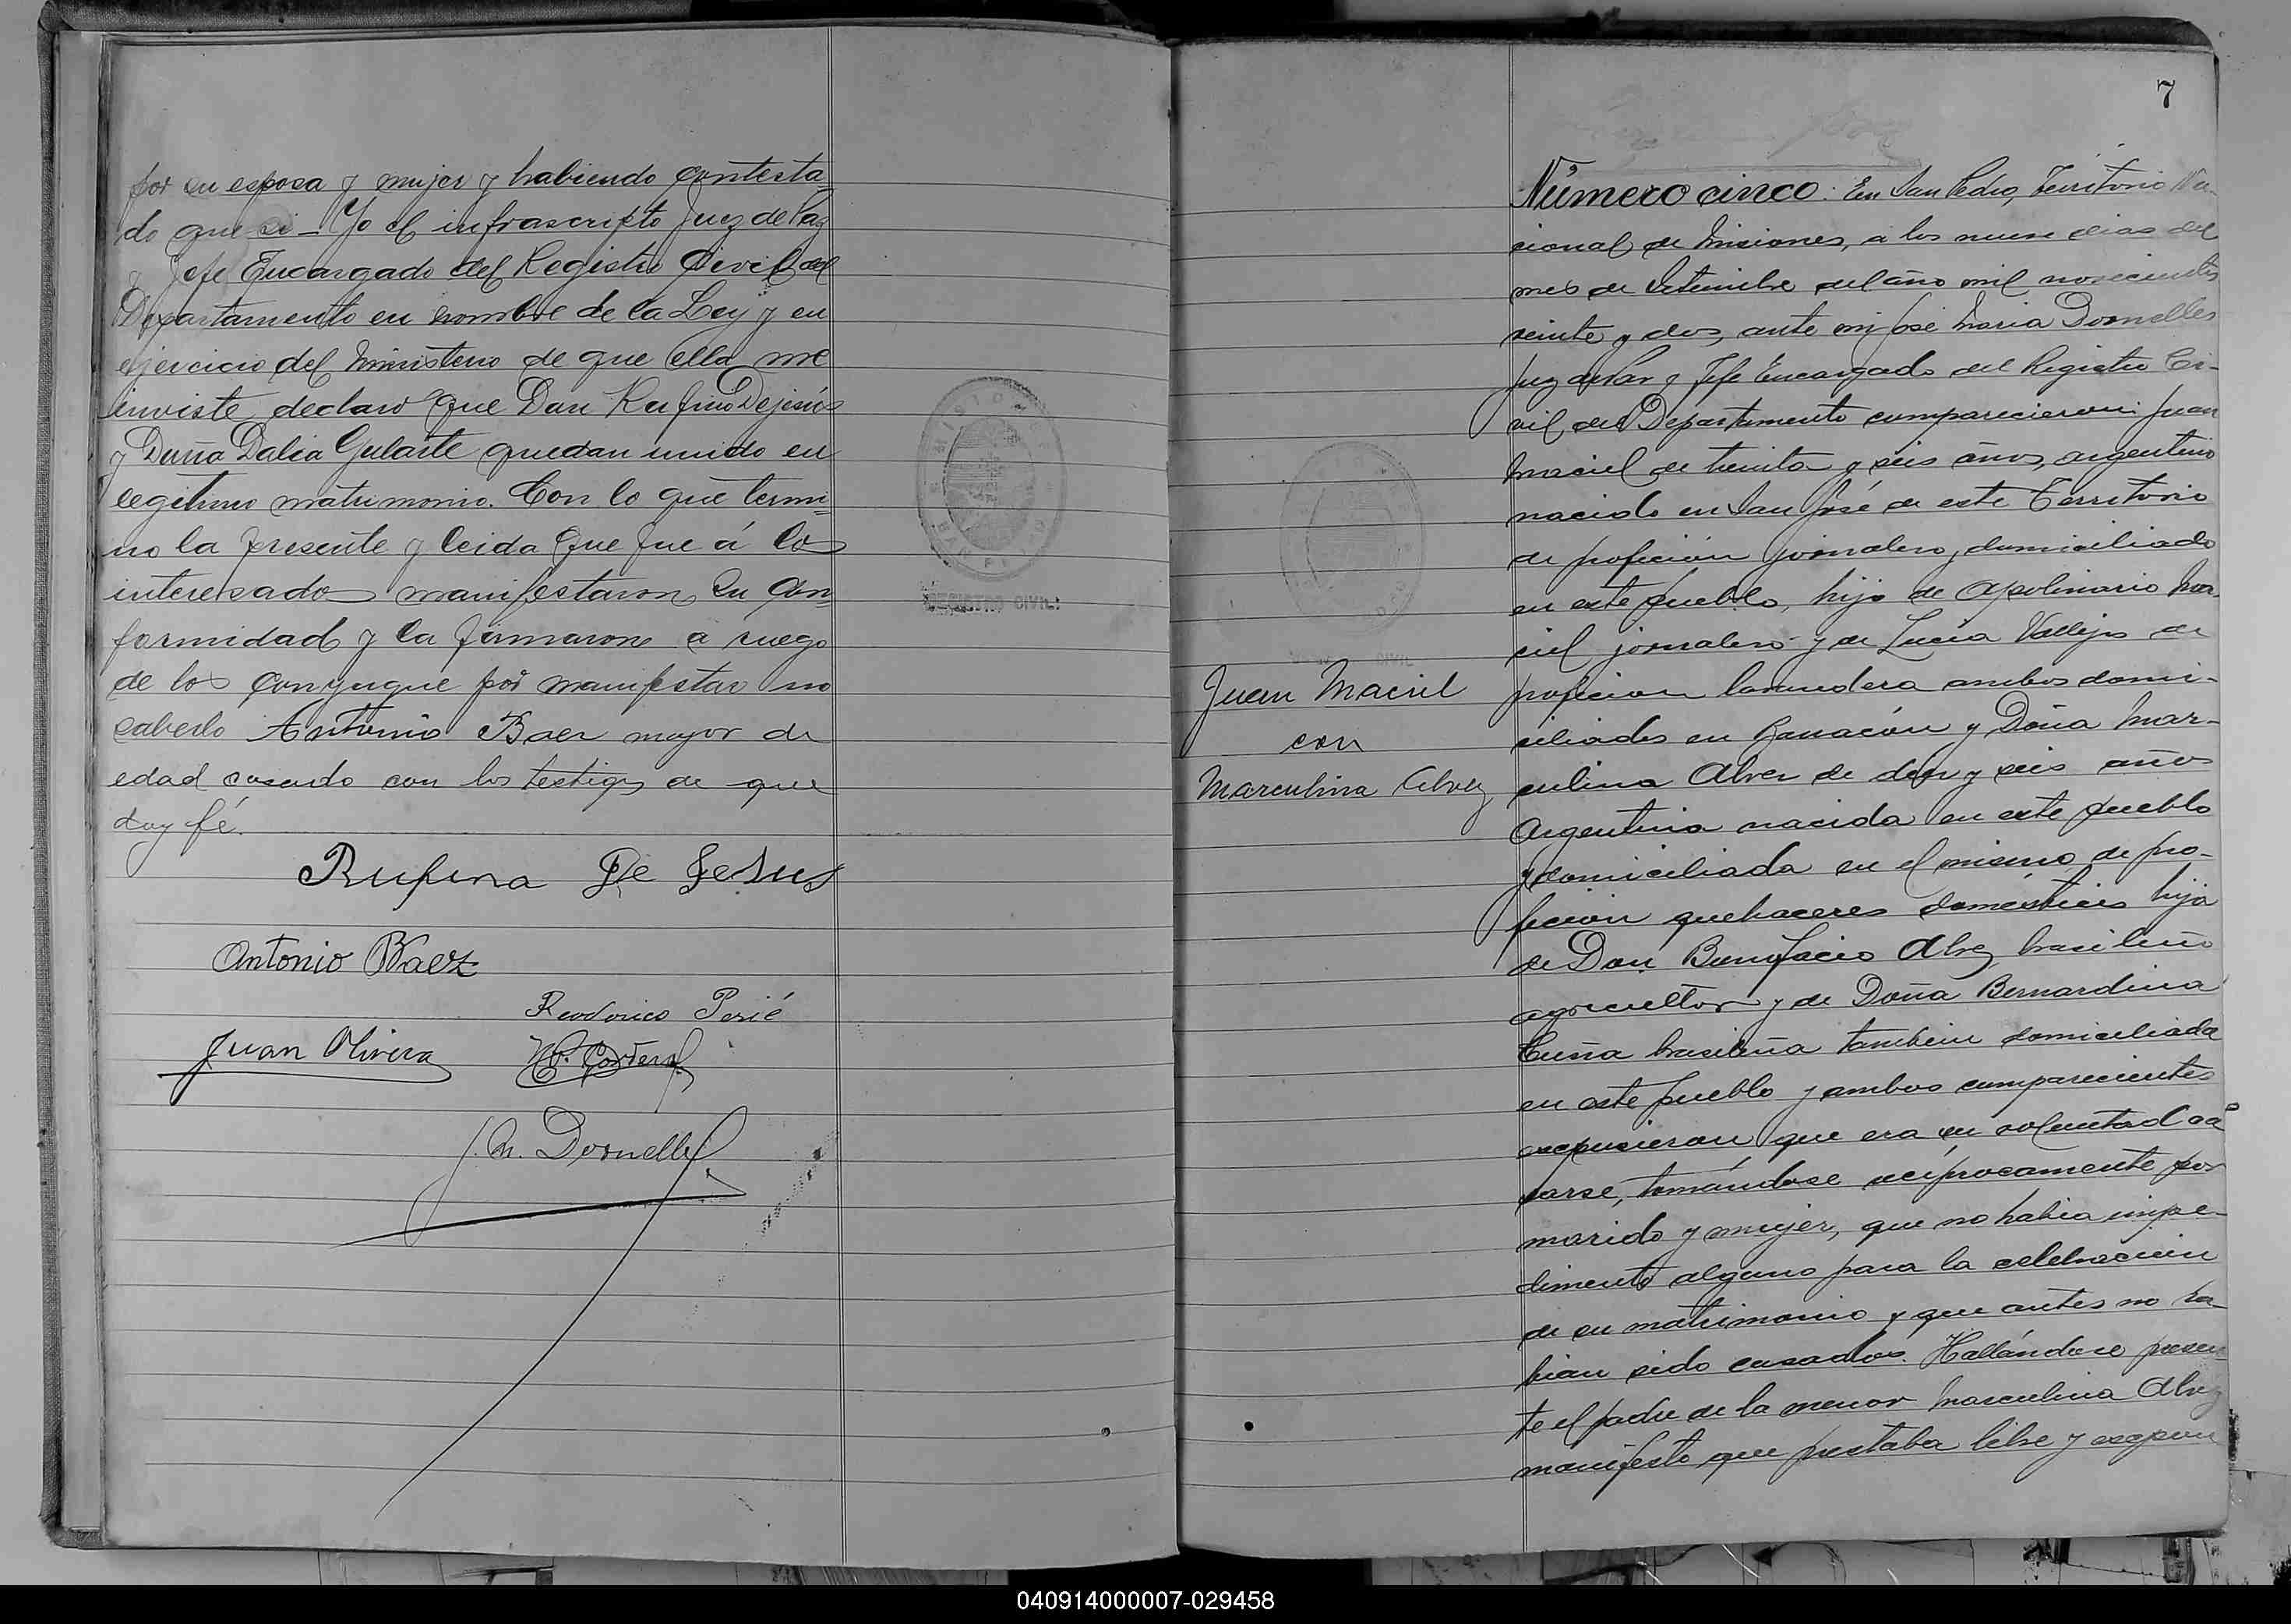 por su esposa y mujer y habiendo contesta
do que si - Yo el infrascripto Juez de Paz
y Jefe Encargado del Registro Civil del
Departamento en nombre de la Ley y en
ejercicio del Ministerio de que ella me
inviste declaro que Don Rufino Dejesús
y Doña Dalia Gularte quedan unido en
legitimo matrimonio. Con lo que termi
no la presente y leida que fue á los
interesados manifestaron su con
formidad y la firmaron a ruego
de los conyugue por manifestar no
saberlo Antonio Baez mayor de
edad casado con los testigos de que
doy fé.
Rufina De Jesus
Antonio Baez
Perié
Juan Olivera
J. M. Dornelles
REGISTRO CIVIL
7
Juan Maciel
con
Marculina Alvez
CIVIL
Número cinco: En San Pedro, Territorio Na-
cional de Misiones, a los nueve dias del
mes de Setiembre del año mil novecientos
veinte y dos, ante mi José Maria Dornelles
Juez de Paz y Jefe Encargado del Registro Ci-
vil del Departamento comparecieron: Juan
Maciel de treinta y seis años, argentino
nacido en San José de este Territorio
de profición jornalero, domiciliado
en este pueblo, hijo de Apolinario Ma-
ciel jornalero y de Lucia Vallejos de
profición lavandera ambos domi-
ciliados en y Doña Mar-
culina Alvez de diez y seis años
Argentina nacida en este pueblo
y domiciliada en el mismo, de pro-
ficción quehaceres domésticos hija
de Don Bonifacio Alvez brasileño
agricultor y de Doña Bernardina
brasileña tambien domiciliada
en este pueblo y ambos comparecientes
expusieron que era su voluntad ca
sarse, tomándose reciprocamente por
marido y mujer, que no habia impe-
dimento alguno para la celebración
de su matrimonio y que antes no ha-
bian sido casados. Hallándose presen
te el padre de la menor Marculina Alvez
manifesto que prestaba libre y espon
040914000007-029458